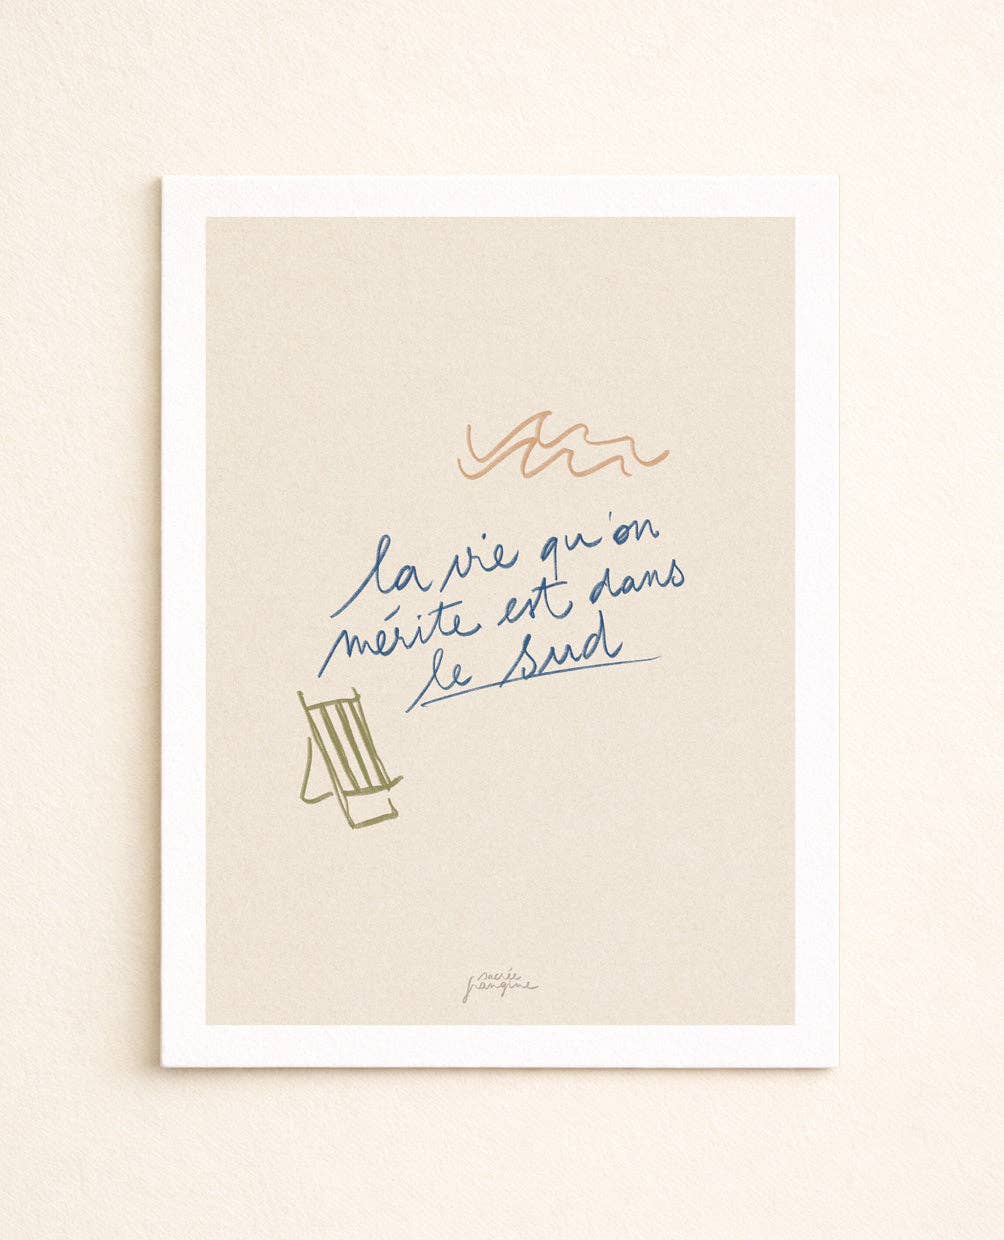 la vie qu'on
mérite est dans
le sud
sacrée
frangine